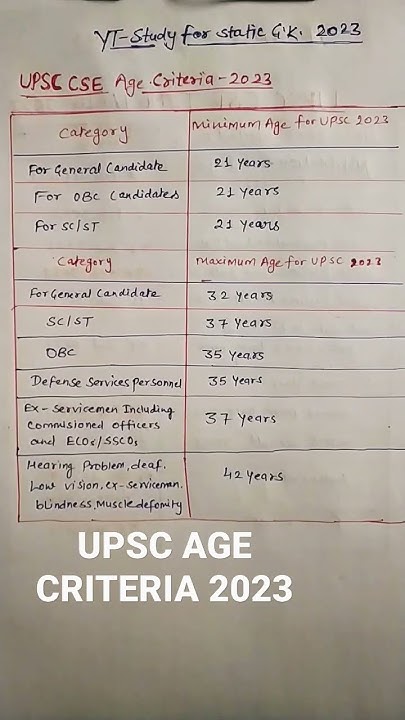 YT-Study for static G.K. 2023
UPSC CSE Age Criteria-2023
Category
Minimum Age for UPSC 2023
For General Candidate
21 Years
For OBC Candidates
21 Years
For SC/ST
21 Years
Category
Maximum Age for UPSC 2023
For General Candidate
32 Years
SC/ST
37 Years
OBC
35 Years
Defense Services personnel
35 Years
Ex-Servicemen Including
Commisioned officers
and ECOs/SSCOs
37 Years
Hearing Problem, deaf,
Low vision, ex-serviceman,
blindness, Muscle defomity
42 Years
UPSC AGE
CRITERIA 2023